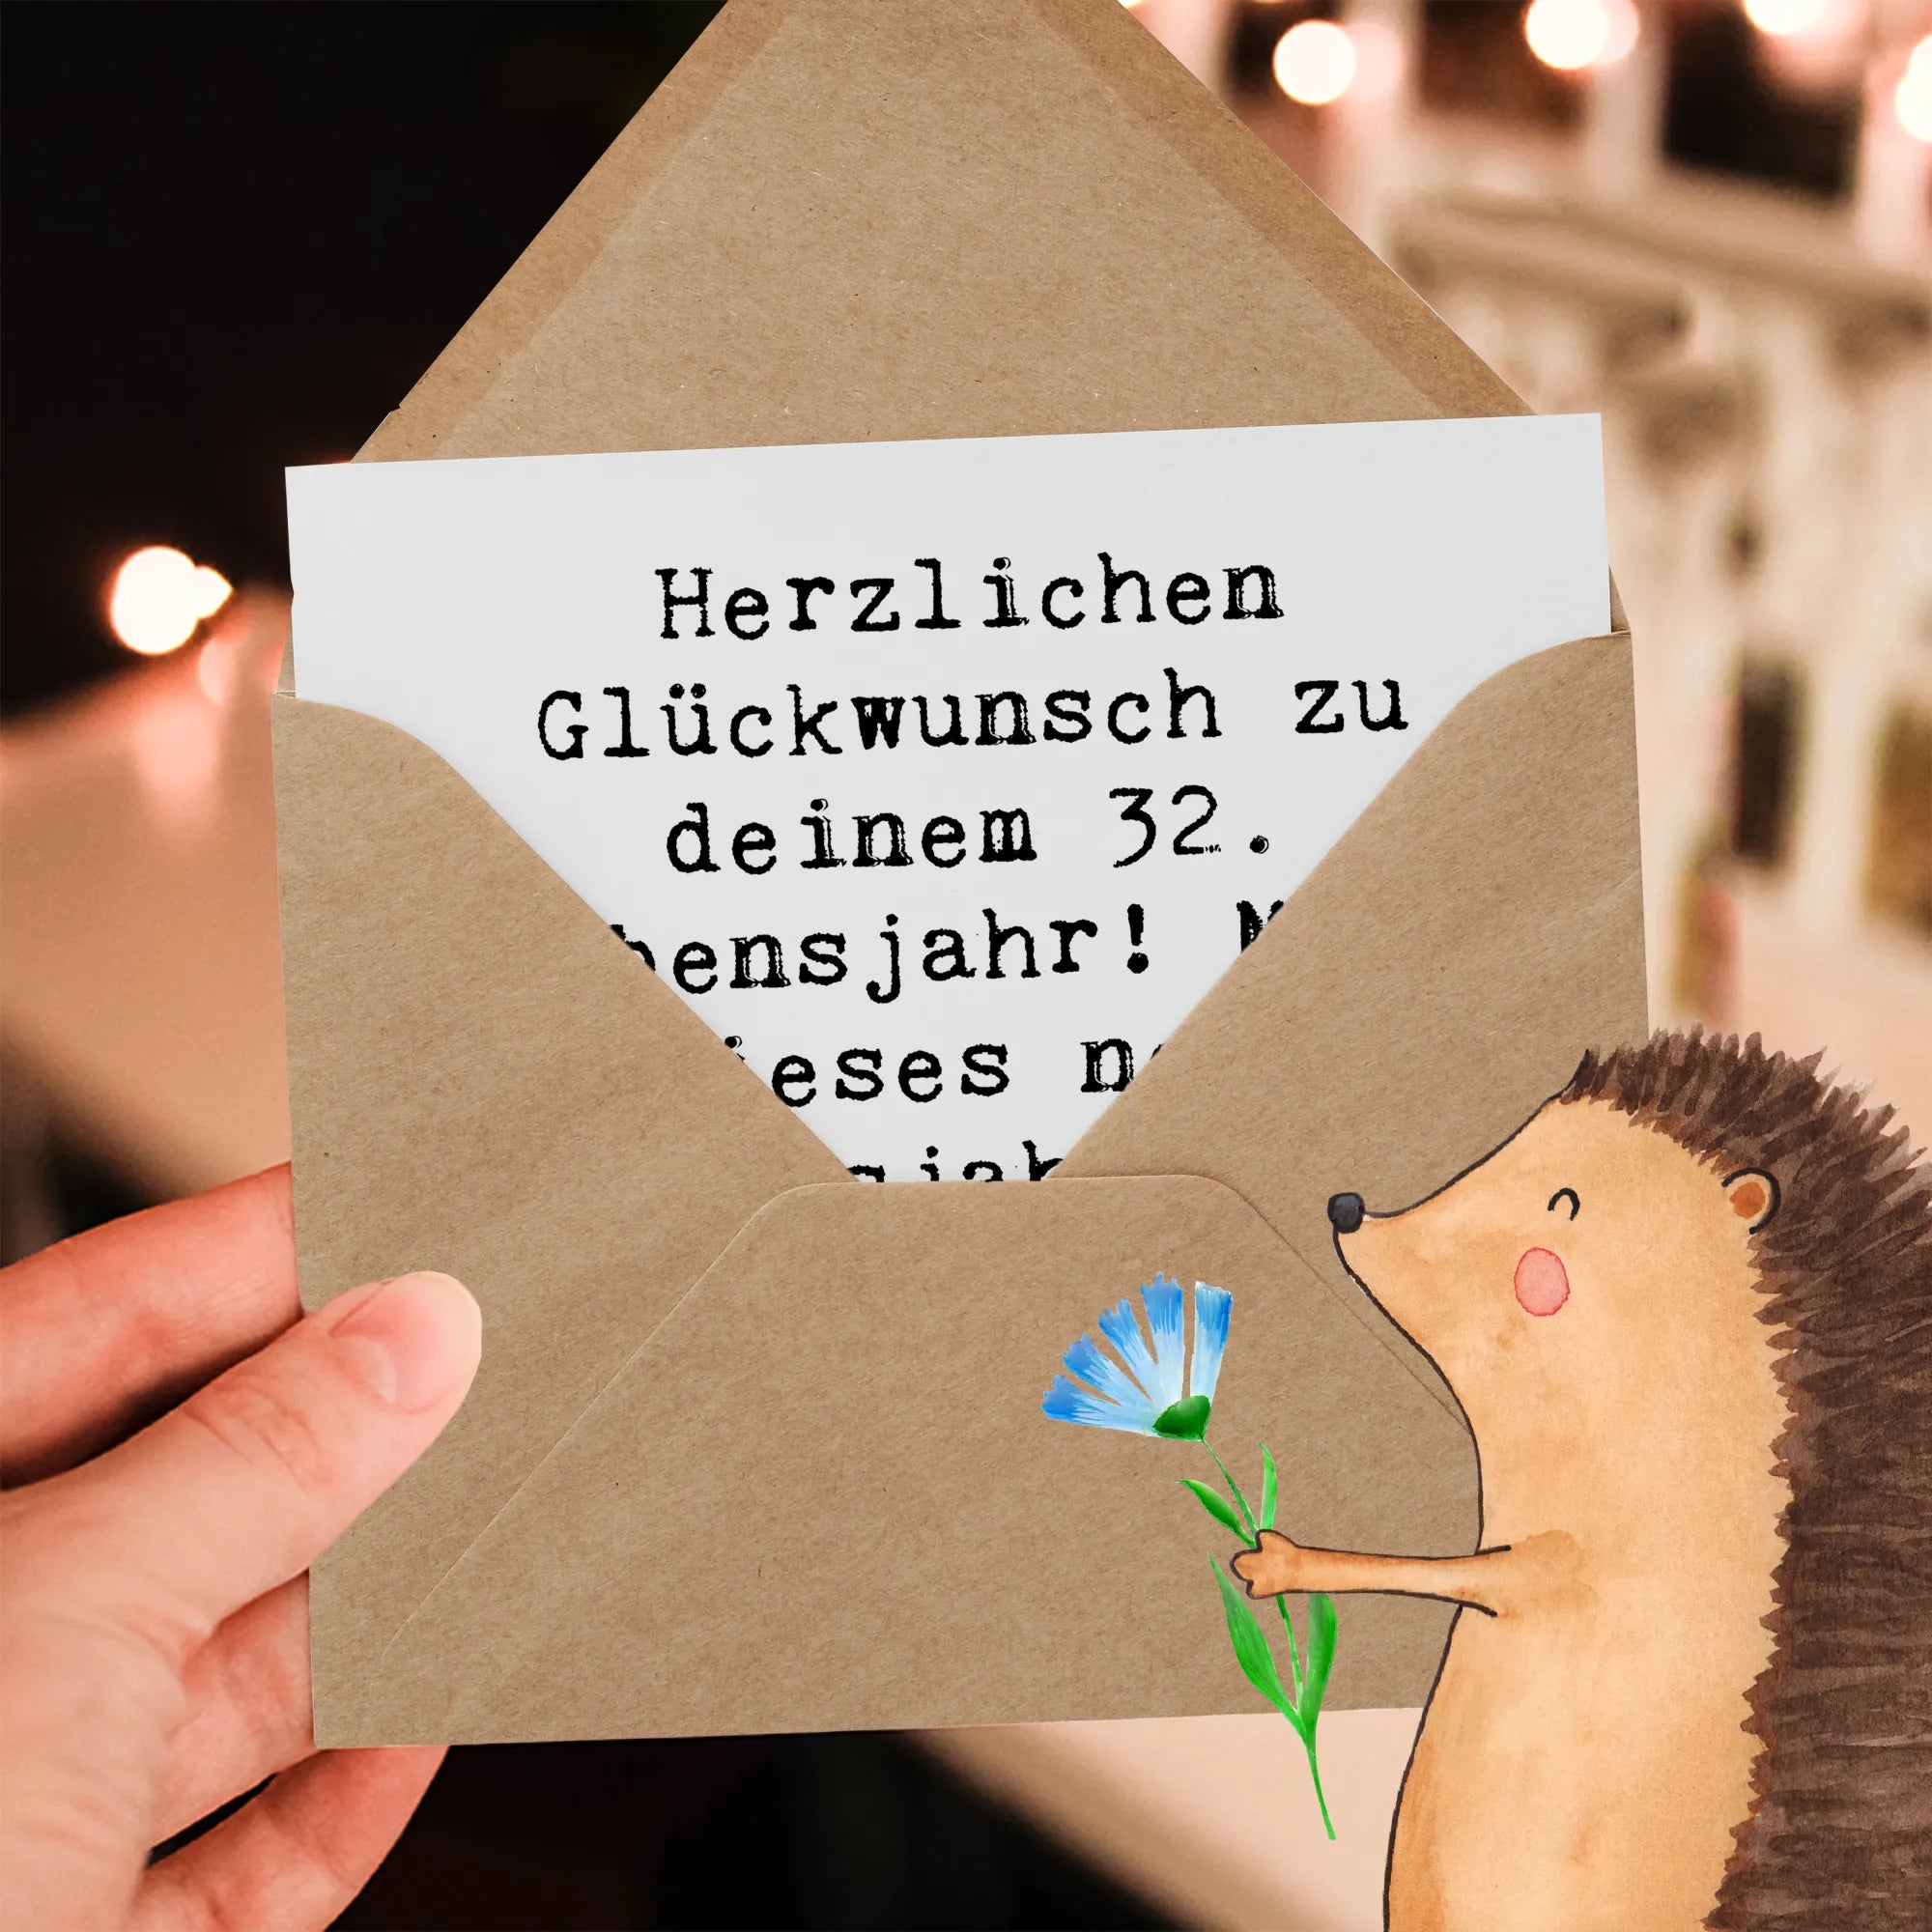 Herzlichen
Glückwunsch zu
deinem 32.
bensjahr! M
ieses n
sjah